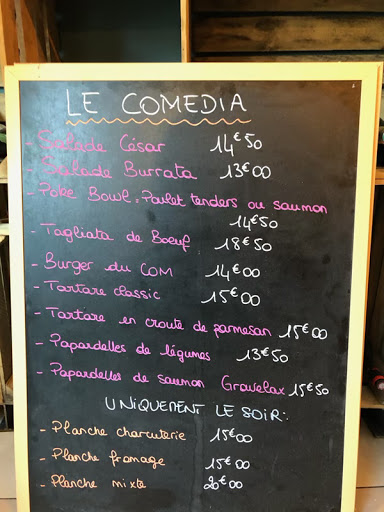 LE COMEDIA
- Salade César 14€50
- Salade Burrata 13€00
- Poke Bowl : Poulet tenders ou saumon
14€50
- Tagliata de Boeuf 18€50
- Burger du COM 14€00
- Tartare classic 15€00
- Tartare en croute de parmesan 15€00
- Papardelles de légumes 13€50
- Papardelles de saumon Gravelax 15€50
UNIQUEMENT LE SOIR :
- Planche charcuterie 15€00
- Planche fromage 15€00
- Planche mixte 20€00